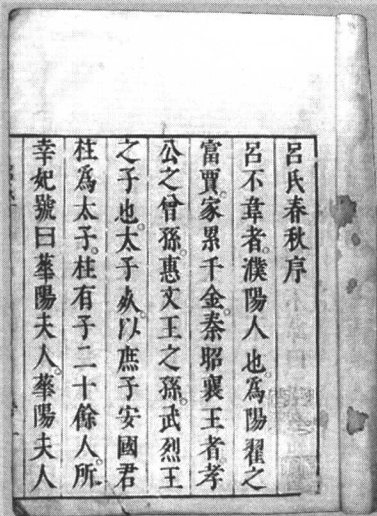 呂氏春秋序
呂不韋者。濮陽人也。為陽翟之
富賈。家累千金。秦昭襄王者。孝
公之曾孫。惠文王之孫。武烈王
之子也。太子死。以庶子安國君
柱為太子。柱有子二十餘人。所
幸妃號曰華陽夫人。華陽夫人